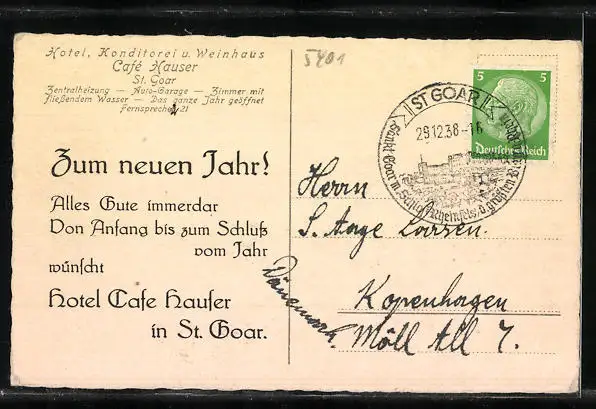 Hotel, Konditorei u. Weinhaus
Café Hauser
St. Goar
Zentralheizung — Auto-Garage — Zimmer mit
fließendem Wasser — Das ganze Jahr geöffnet
Fernsprecher 21
5401
Zum neuen Jahr!
Alles Gute immerdar
Von Anfang bis zum Schluß
vom Jahr
wünscht
Hotel Cafe Hauser
in St. Goar.
ST GOAR
29.12.38-16
Sankt Goar m. Schloß Rheinfels, d. größten
5 5
Deutsches Reich
Herrn
S. Aage Larsen.
Kopenhagen
Möll All 7.
Dänemark.